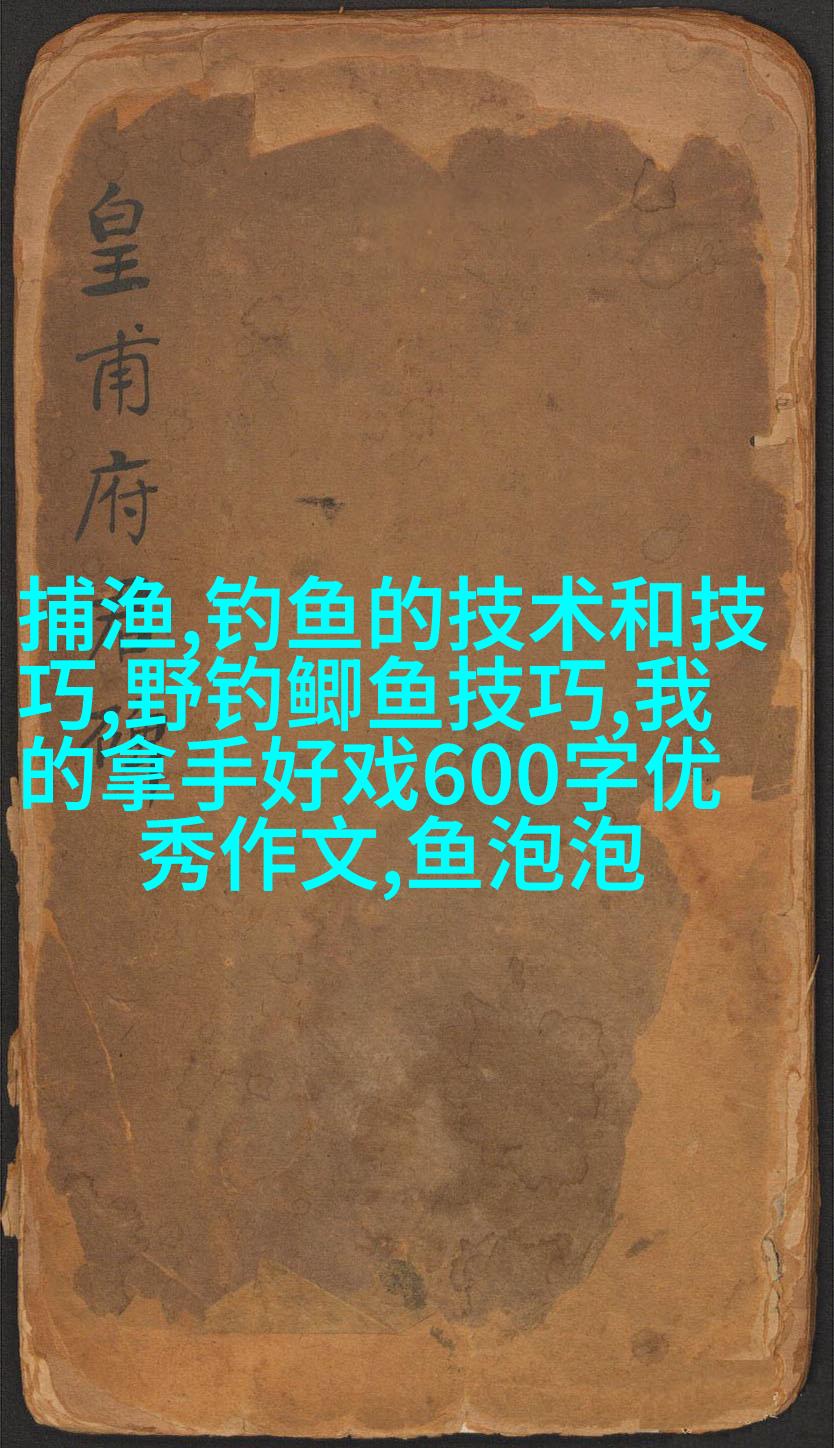 皇甫府君碑
捕渔,钓鱼的技术和技
巧,野钓鲫鱼技巧,我
的拿手好戏600字优
秀作文,鱼泡泡